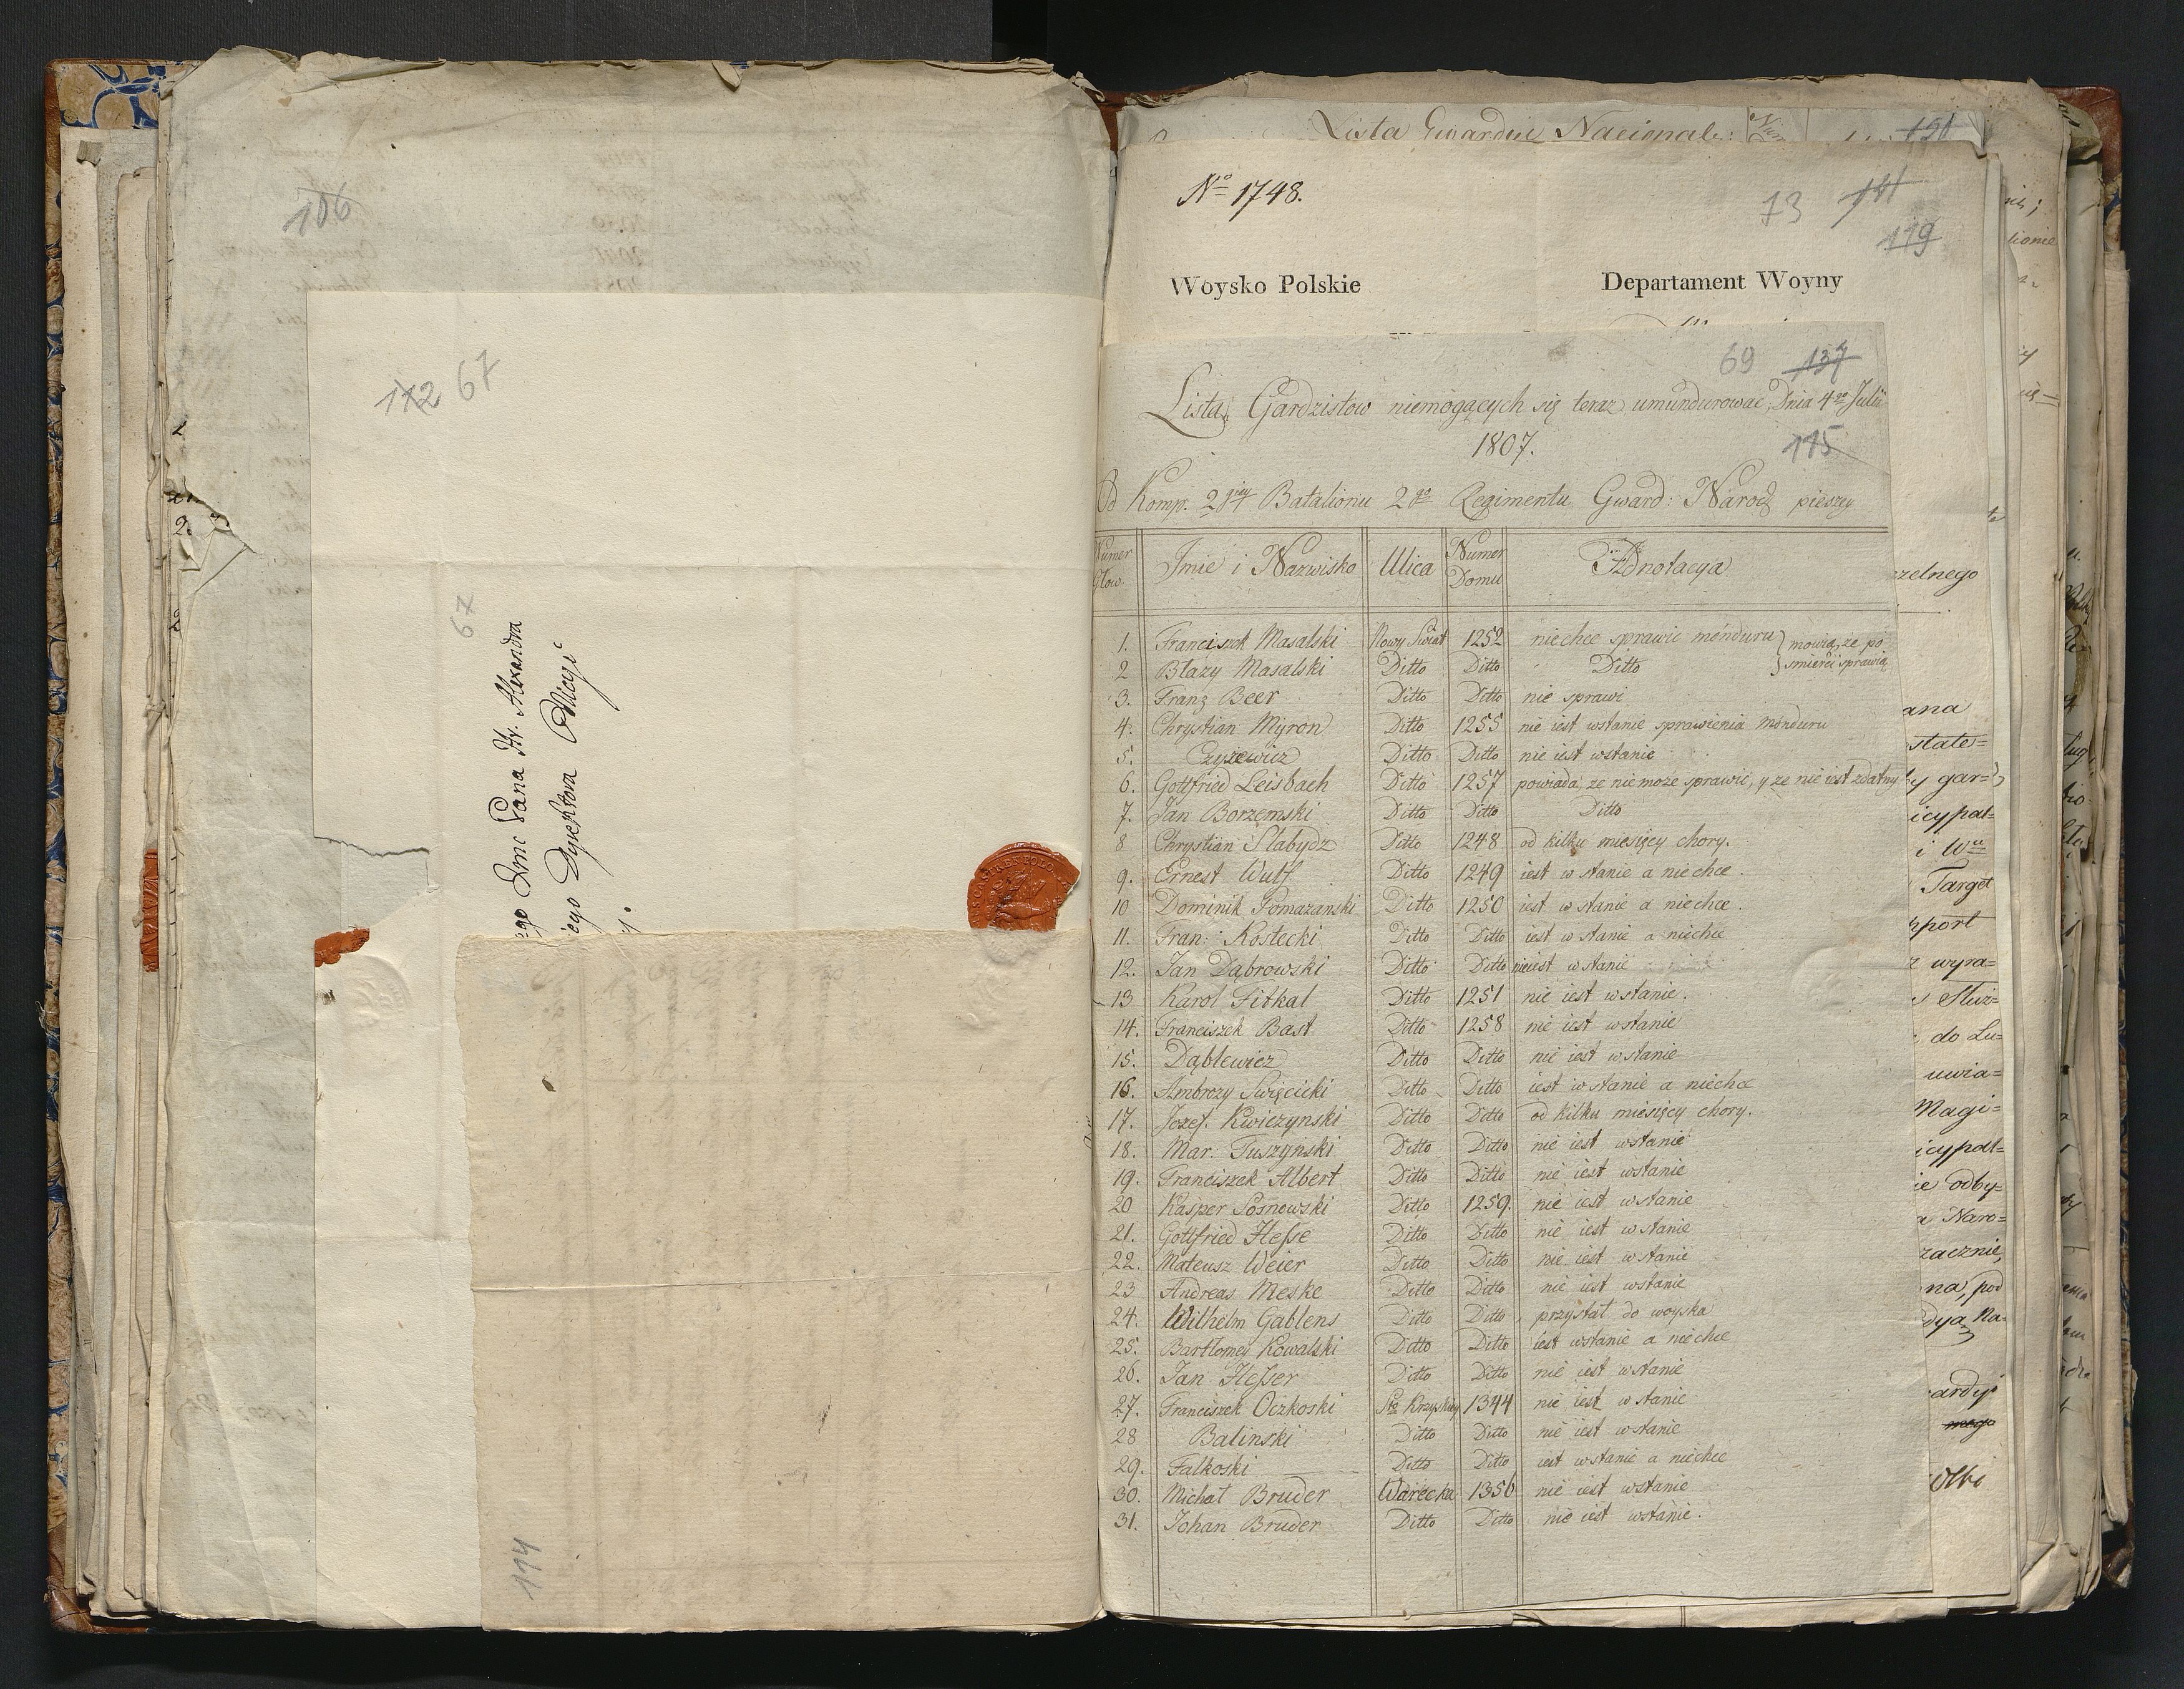 106
112 67
67
Jmc Pana Hr. Alexandra
Dyrektora Policyi
114
Lista Gwardii Nacional:
131
No 1748.
73 141
119
Woysko Polskie Departament Woyny
69 137
Lista Gardzistow niemogących się teraz umundurowac, Dnia 4go Julii
1807.
115
Od Komp. 2giey Batalionu 2go Regimentu Gward: Narod pieszey
Numer Glow Jmie i Nazwisko Ulica Numer Domu Adnotacya
1. Franciszek Masalski Nowy Swiat 1252 niechce sprawic monduru } mowią, ze po
2 Błazy Masalski Ditto Ditto Ditto } smierci sprawią
3. Franz Beer Ditto Ditto nie sprawi
4. Chrystian Meyron Ditto 1255 nie iest wstanie sprawienia monduru
5. Czyzewicz Ditto Ditto nie iest wstanie
6. Gottfried Leisbach Ditto 1257 powiada, ze nie moze sprawic, y ze nie iest zdatny
7. Jan Borzemski Ditto Ditto Ditto
8 Chrystian Slabydz Ditto 1248 od kilku miesięcy chory.
9. Ernest Wulf Ditto 1249 iest w stanie a niechce.
10 Dominik Pomazanski Ditto 1250 iest w stanie a niechce.
11. Fran: Kostecki Ditto Ditto iest w stanie a niechce
12. Jan Dąbrowski Ditto Ditto nieiest w stanie
13 Karol Fitkal Ditto 1251 nie iest wstanie.
14. Franciszek Bast Ditto 1258 nie iest wstanie
15. Dąblewicz Ditto Ditto nie iest wstanie
16. Ambrozy Swięcicki Ditto Ditto iest w stanie a niechce
17. Jozef. Kwiczynski Ditto Ditto od kilku miesięcy chory.
18. Mar: Tuszyński Ditto Ditto nie iest wstanie
19. Franciszek Albert Ditto Ditto nie iest wstanie
20 Kasper Sosnowski Ditto 1259. nie iest wstanie
21. Gottfried Hesse Ditto Ditto nie iest wstanie
22. Mateusz Weier Ditto Ditto nie iest wstanie
23 Andreas Meske Ditto Ditto nie iest wstanie
24. Wilhelm Gablens Ditto Ditto przystał do woyska
25. Bartlomey Kowalski Ditto Ditto iest wstanie a niechce
26. Jan Hesser Ditto Ditto nie iest wstanie
27. Franciszek Oczkoski Sto Krzyskiey 1344 nie iest w stanie
28 Balinski Ditto Ditto nie iest wstanie
29. Falkoski Ditto Ditto iest wstanie a niechce
30. Michał Bruder Warecka 1356 nie iest wstanie
31. Johan Bruder Ditto Ditto nie iest wstanie.
zelnego
ana
state=
y gar=
icypal=
i Wu
Target
pport
wyra=
Słuz=
do Lu=
uwia=
Magi=
icypal=
ie odby=
Naro=
zacznie,
na, pod
dya Na=
ardyi
mego